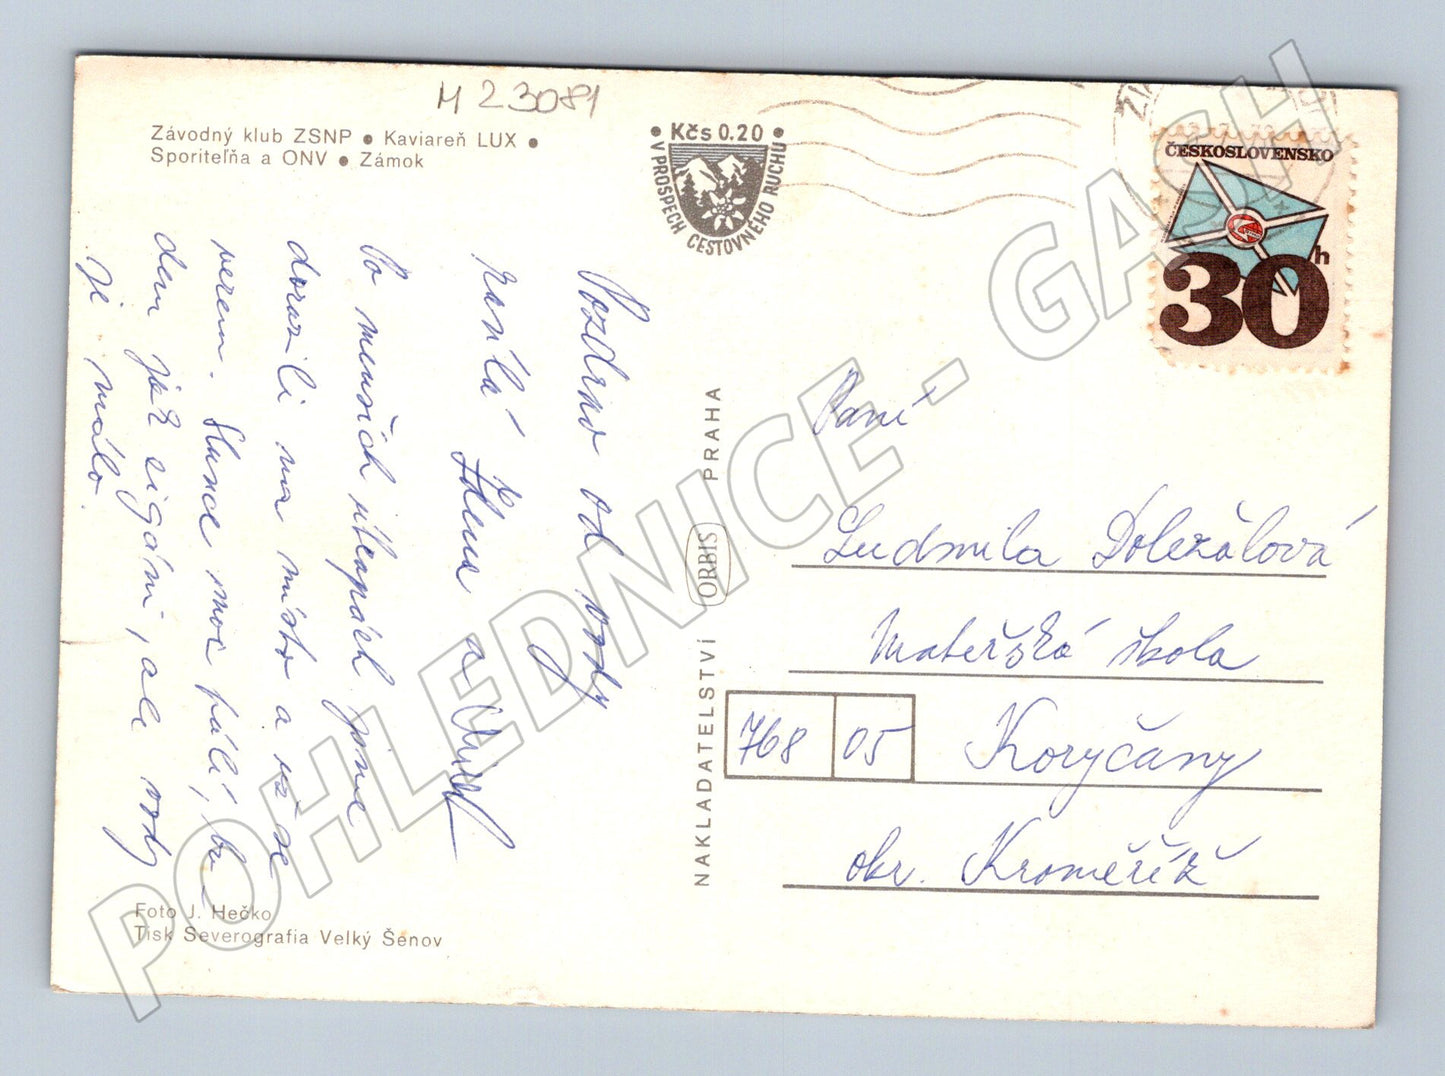 M 23081
Závodný klub ZSNP • Kaviareň LUX •
Sporiteľňa a ONV • Zámok
• Kčs 0.20 •
V PROSPECH CESTOVNÉHO RUCHU
ČESKOSLOVENSKO
30h
Pozdrav od vody
zasílá Zdena a
Po menších útrapách jsme
dorazili na místo a už se
Slunce moc pálí, bu-
dem jak cigáni, ale vody
je málo.
NAKLADATELSTVÍ ORBIS PRAHA
Paní
Ludmila Doležalová
Mateřská škola
768 05 Koryčany
okr. Kroměříž
Foto J. Hečko
Tisk Severografia Velký Šenov
POHLEDNICE - GASH